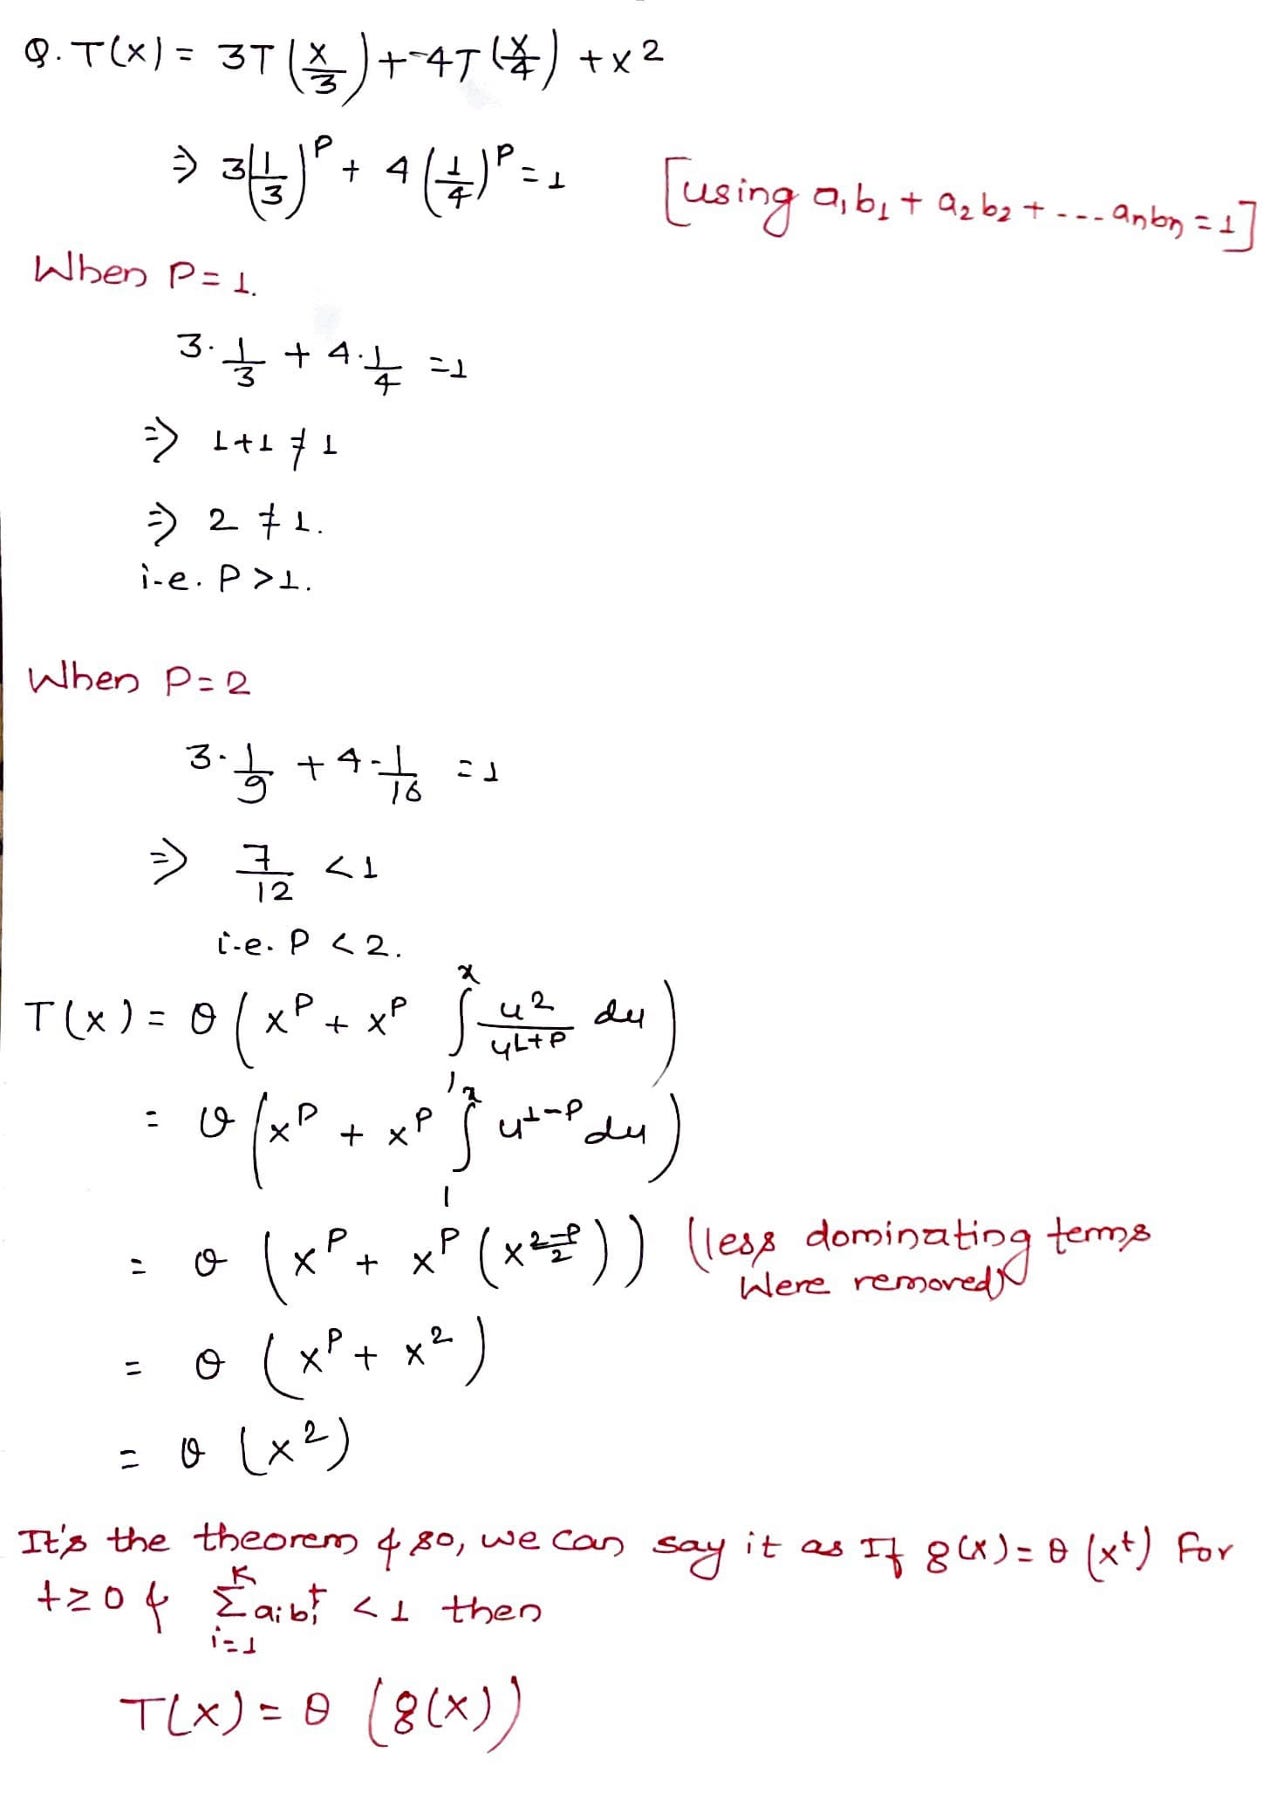 Q. T(x) = 3T(x/3) + 4T(x/4) + x²
⇒ 3(1/3)^P + 4(1/4)^P = 1 [using a₁b₁ + a₂b₂ + --- aₙbₙ = 1]
When P = 1.
3·1/3 + 4·1/4 = 1
⇒ 1+1 ≠ 1
⇒ 2 ≠ 1.
i.e. P > 1.
When P = 2
3·1/9 + 4·1/16 = 1
⇒ 7/12 < 1
i.e. P < 2.
T(x) = θ(x^P + x^P ∫₁^x u²/u^(1+P) du)
= θ(x^P + x^P ∫₁^x u^(1-P) du)
= θ(x^P + x^P (x^(2-P)/2)) (less dominating terms
were removed)
= θ(x^P + x²)
= θ(x²)
It's the theorem & so, we can say it as If g(x) = θ(x^t) for
t ≥ 0 & Σ_{i=1}^{K} aᵢbᵢ^t < 1 then
T(x) = θ(g(x))